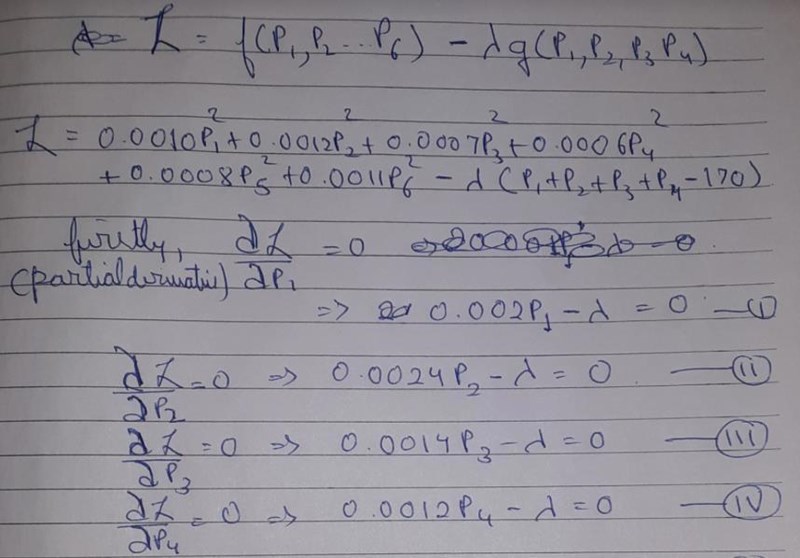 L = f(P₁, P₂ ... P₆) - λg(P₁, P₂, P₃ P₄)
L = 0.0010P₁² + 0.0012P₂² + 0.0007P₃² + 0.0006P₄²
+ 0.0008P₅² + 0.0011P₆² - λ (P₁+P₂+P₃+P₄-170)
firstly, ∂L/∂P₁ = 0
(partial derivative)
=> 0.002P₁ - λ = 0 — (i)
∂L/∂P₂ = 0 => 0.0024P₂ - λ = 0 — (ii)
∂L/∂P₃ = 0 => 0.0014P₃ - λ = 0 — (iii)
∂L/∂P₄ = 0 => 0.0012P₄ - λ = 0 — (iv)